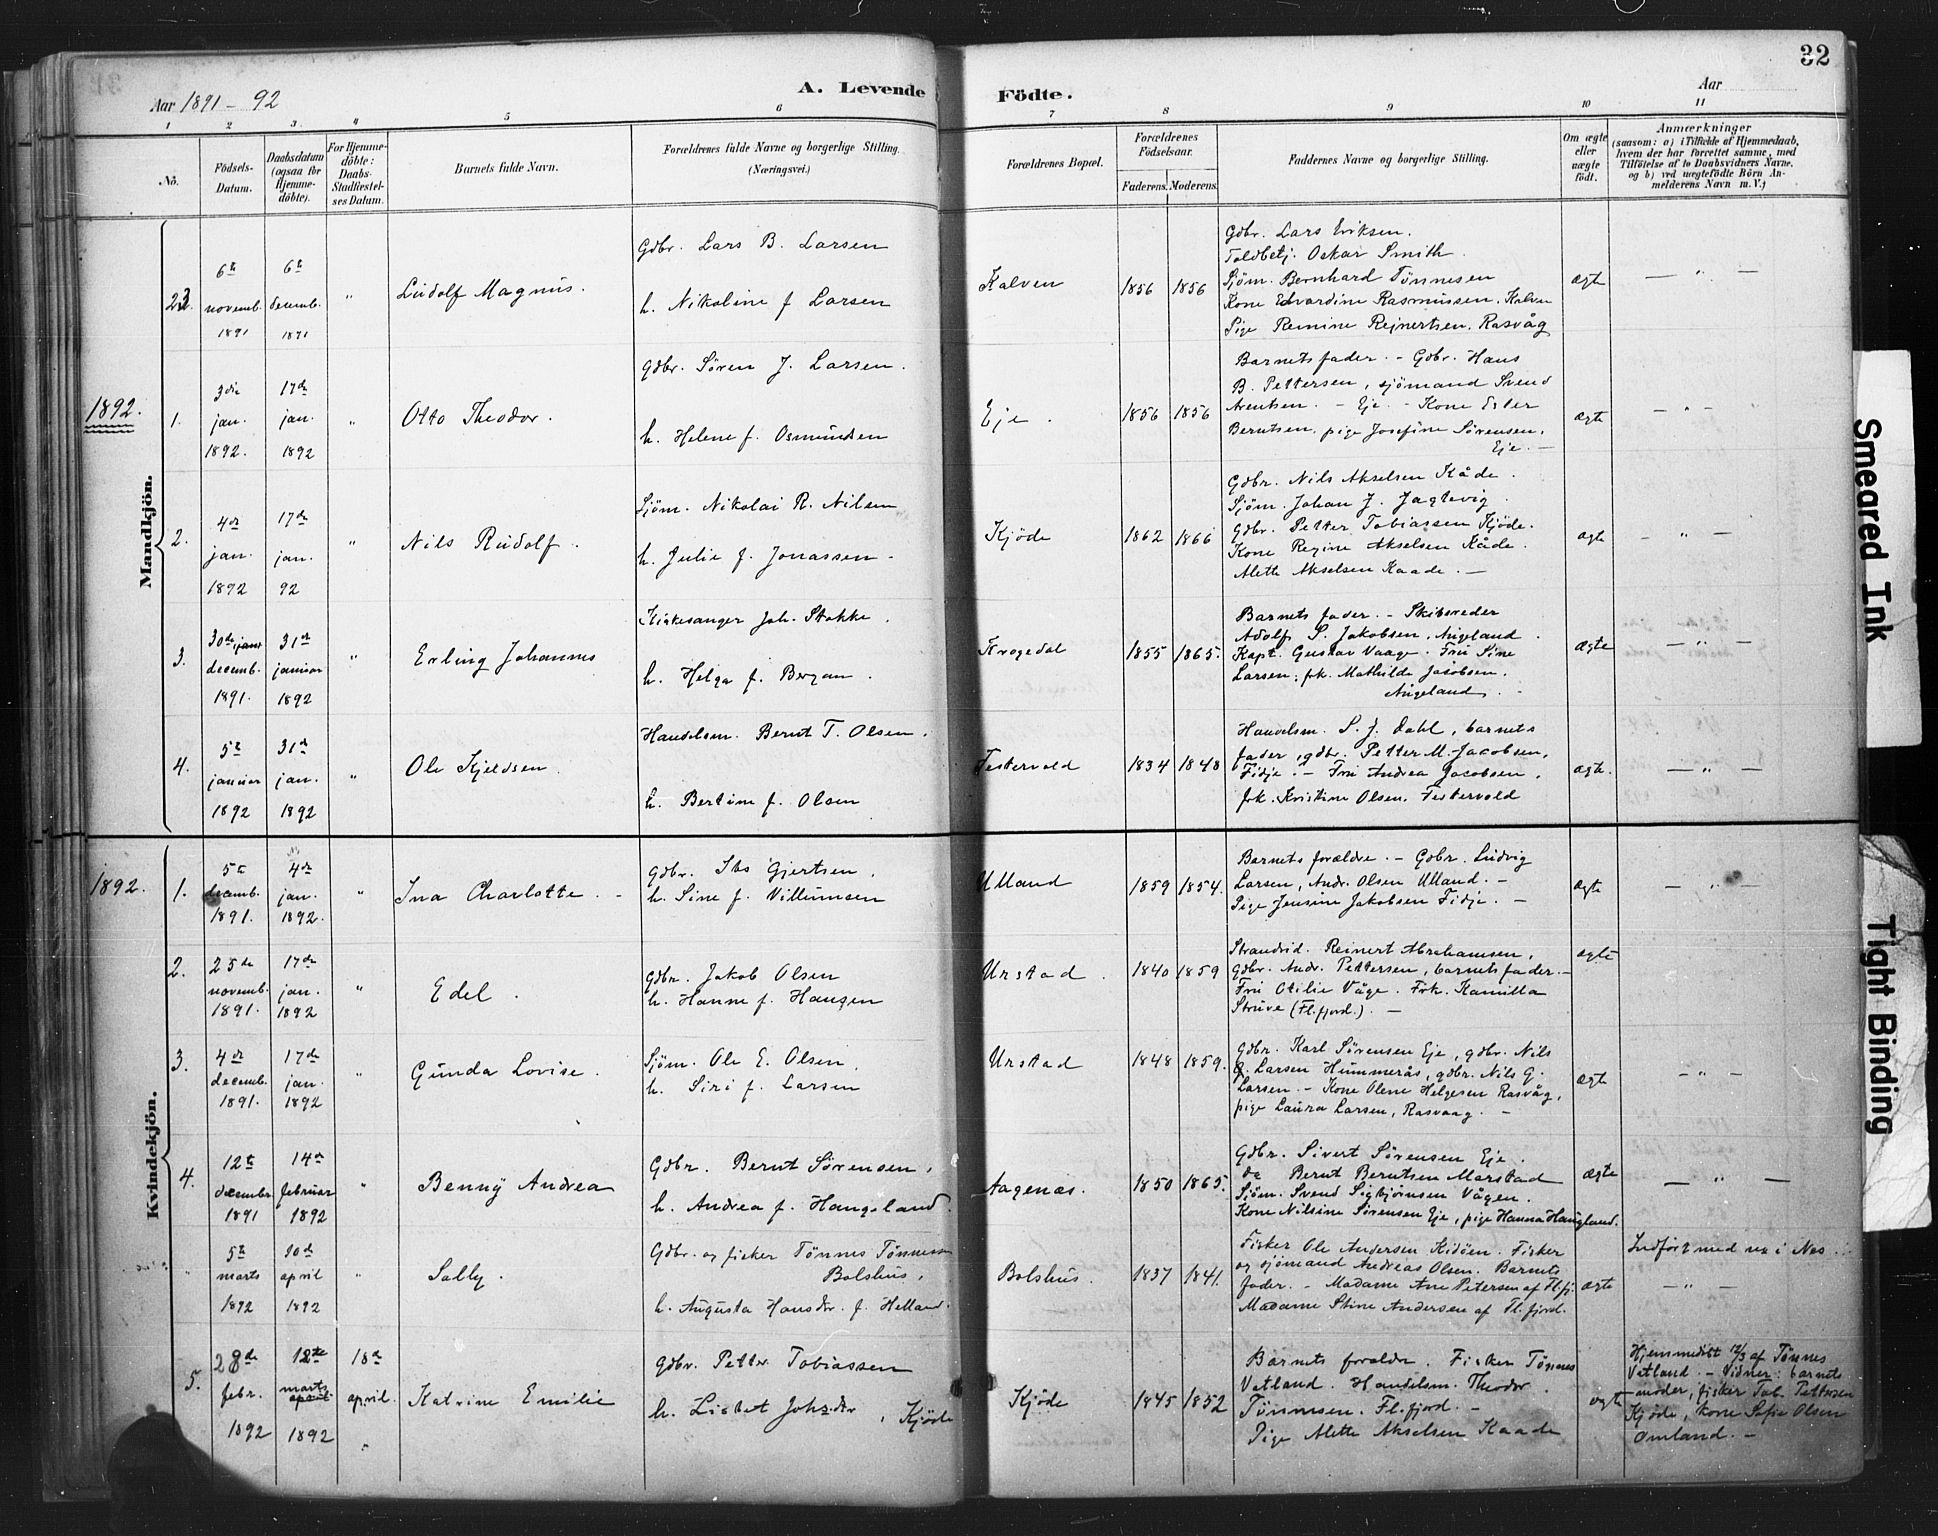 32
Aar 1891 - 92
A. Levende Födte.
Aar
1 2 3 4 5 6 7 8 9 10 11
No.
Födsels-Datum.
Daabsdatum (ogsaa for Hjemme-döbte).
For Hjemme-döbte: Daabs-Stadfæstel-ses Datum.
Barnets fulde Navn.
Forældrenes fulde Navne og borgerlige Stilling (Næringsvei.)
Forældrenes Bopæl.
Forældrenes Födselsaar.
Faderens. Moderens.
Faddernes Navne og borgerlige Stilling.
Om ægte eller uægte födt.
Anmærkninger
(saasom: a) i Tilfælde af Hjemmedaab, hvem der har forrettet samme, med Tilföielse af to Daabsvidners Navne, og b) ved uægtefödte Börn An-melderens Navn m. V.)
Mandkjön.
23.
6te novemb. 1891
6te decemb. 1891
"
Ludolf Magnus.
Gdbr. Lars B. Larsen
h. Nikoline f Larsen
Kalven
1856 1856
Gdbr. Lars Eriksen.
Toldbetj. Oskar Smith.
Sjøm. Bernhard Tönnesen
Kone Edvardine Rasmussen, Kalven
Pige Remine Rejnertsen. Rasvåg
ægte
— " —
1892.
1.
3die jan. 1892.
17de jan. 1892
"
Otto Theodor.
Gdbr. Søren J. Larsen.
h. Helene f. Osmundsen
Eje.
1856 1856
Barnets fader. - Gdbr. Hans
B. Pettersen, sjömand Svend
Arentsen. - Eje. - Kone Ester
Berntsen, pige Josefine Sørensen,
Eje. -
ægte
— " —
2.
4de jan. 1892
17de jan. 92
"
Nils Rudolf.
Sjöm. Nikolai R. Nilsen
h. Julie f. Jonassen -
Kjöde
1862 1866
Gdbr. Nils Akselsen Kåde.
Sjöm. Johan J. Jagtevig.
Gdbr. Petter Tobiassen Kjöde.
Kone Regine Akselsen Kåde.
Alette Akselsen Kaade. -
ægte
- " -
3.
30de decemb. 1891.
31te januar 1892
"
Erling Johannes
Kirkesanger Joh. Stokke.
h. Helga f. Bergan.
Krogedal
1855 1865.
Barnets fader. - Skibsreder
Adolf S. Jakobsen, Augeland.
Kapt. Gustav Vaage. Fru Sine
Larsen, frk. Mathilde Jacobsen,
Augeland. -
ægte
— " —
4.
5te januar 1892
31te jan. 1892
"
Ole Kjeldsen
Handelsm. Bernt T. Olsen.
h. Bertine f. Olsen
Festervold
1834 1848
Handelsm. S. J. Dahl, barnets
fader, gdbr. Petter M. Jacobsen,
Fidje. - Fru Andrea Jacobsen,
frk. Kristine Olsen. Festervold
ægte.
— " —
Kvindekjön.
1892.
1.
5te decemb. 1891.
4de jan. 1892.
"
Ina Charlotte. -
Gdbr. Ibs Gjertsen,
h. Sine f. Villumsen
Ulland
1859 1854.
Barnets forældre. - Gdbr. Ludvig
Larsen, Andr. Olsen Ulland. -
Pige Jensine Jakobsen Fidje. -
ægte
— " —
2.
25de novemb. 1891.
17de jan. 1892
"
Edel.
Gdbr. Jakob Olsen
h. Hanne f. Hansen
Urstad.
1840 1859
Strandsid. Reinert Abrahamsen,
gdbr. Andr. Pettersen, barnets fader. -
Fru Otilie Våge. Frk. Kamilla
Strüve (Fl.fjord.). -
ægte
3.
4de decemb. 1891.
17de jan. 1892
"
Gunda Lovise.
Sjøm. Ole E. Olsen,
h. Siri f. Larsen
Urstad
1848 1859.
Gdbr. Karl Sørensen Eje, gdbr. Nils
G. Larsen Hummerås, gdbr. Nils G.
Larsen. - Kone Olene Helgesen Rasvåg,
pige Laura Larsen, Rasvaag. -
ægte
- " -
4.
12te decembr 1891
14de februar 1892
"
Benny Andrea
Gdbr. Bernt Sørensen,
h. Andrea f. Haugeland.
Aagenæs.
1850 1865.
Gdbr. Sivert Sørensen Eje.
do Bernt Berntsen Marstad
Sjöm. Svend Sigbjörnsen Vågen.
Kone Nilsine Sørensen Eje, pige Hanna Haugland.
ægte
— " —
"
5te marts 1892
10de april 1892
"
Sally.
Gdbr. og fisker Tönnes Tönnessen
Bolshus,
h. Augusta Hansdtr. f. Helland.
Bolshus.
1837 1841.
Fisker Ole Andersen Kidöen. Fisker
og sjömand Andreas Olsen. Barnets
fader. - Madame Ane Petersen af Fl.fj.
Madame Stine Andersen af Fl.fjord.
ægte
Indfört med no i Nes.
— " —
5.
28de febr. 1892
12te marts 1892
18de april.
"
Katrine Emilie
Gdbr. Petter Tobiassen
h. Lisbet Johsdtr, Kjöde
Kjöde
1845 1852
Barnets forældre. Fisker Tönnes
Vetland. Handelsm. Theodor
Tönnesen. Fl.fjord. -
Pige Alette Akselsen Kaade
ægte
Hjemmedöbt 12/3 af Tönnes
Vetland. - Vidner: barnets
moder, fisker Tob. Pettersen
Kjöde, kone Sofie Olsen
Omland. -
Smeared Ink
Tight Binding